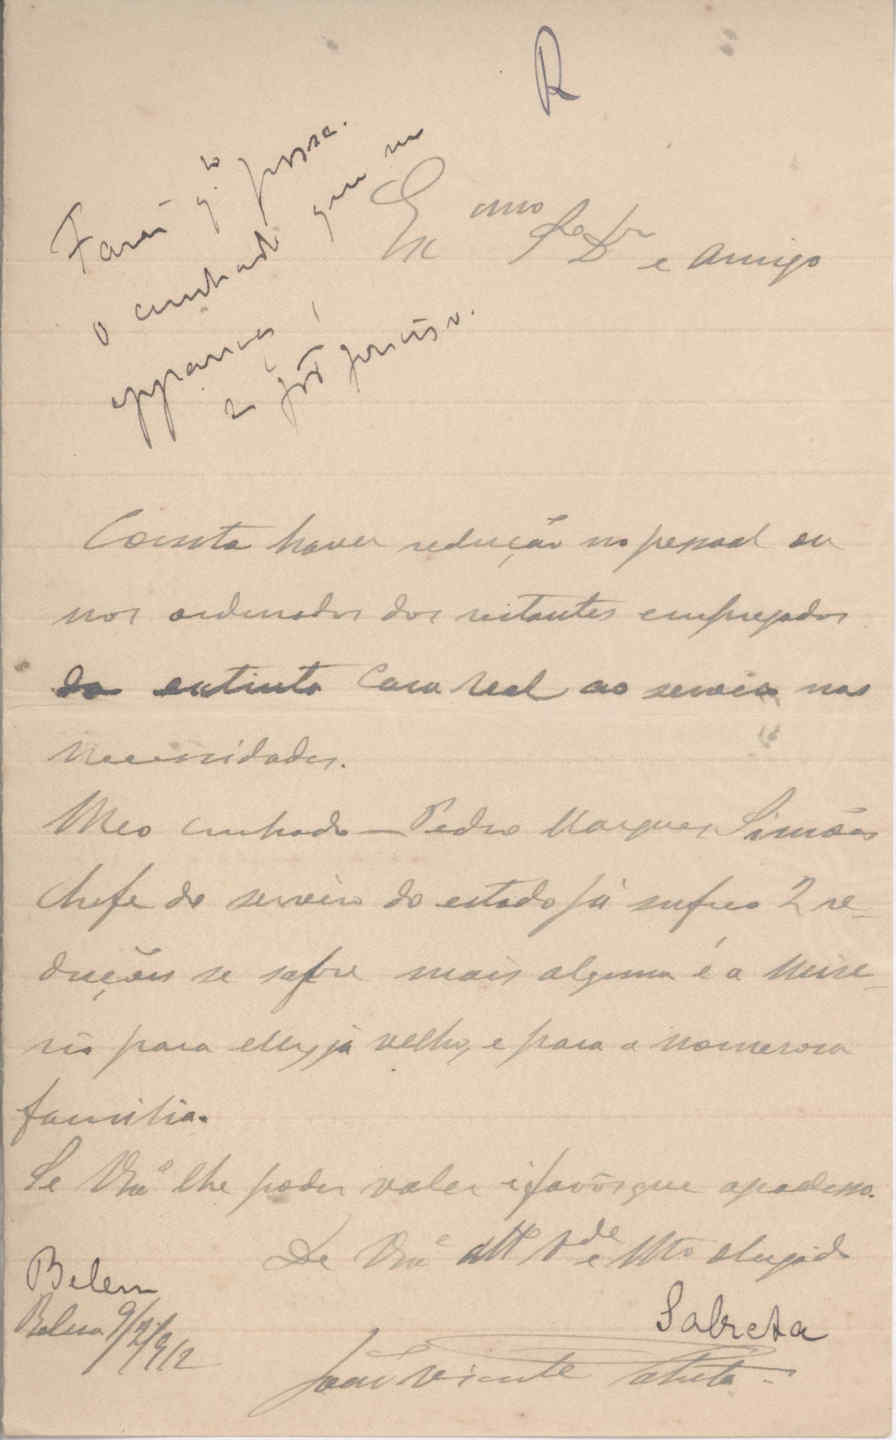 R
Farei q.to possa.
o cunhado que me
appareça,
Ex.mo Sr. Dr. e Amigo
Consta haver redução no pessoal ou
nos ordenados dos restantes empregados
da extinta Casa Real ao serviço nas
Necessidades.
Meo cunhado — Pedro Marques Simões
Chefe do serviço do estado já sufreo 2 re-
duções se sofre mais alguma é a mise-
ria para elle, já velho, e para a numerosa
familia.
Se V.Ex.ª lhe poder valer é favôr que agradesso.
De V.Ex.ª att.º V.de e Mto obrigado
Belem
Sabreta
Belem 9/7/912
João Vicente